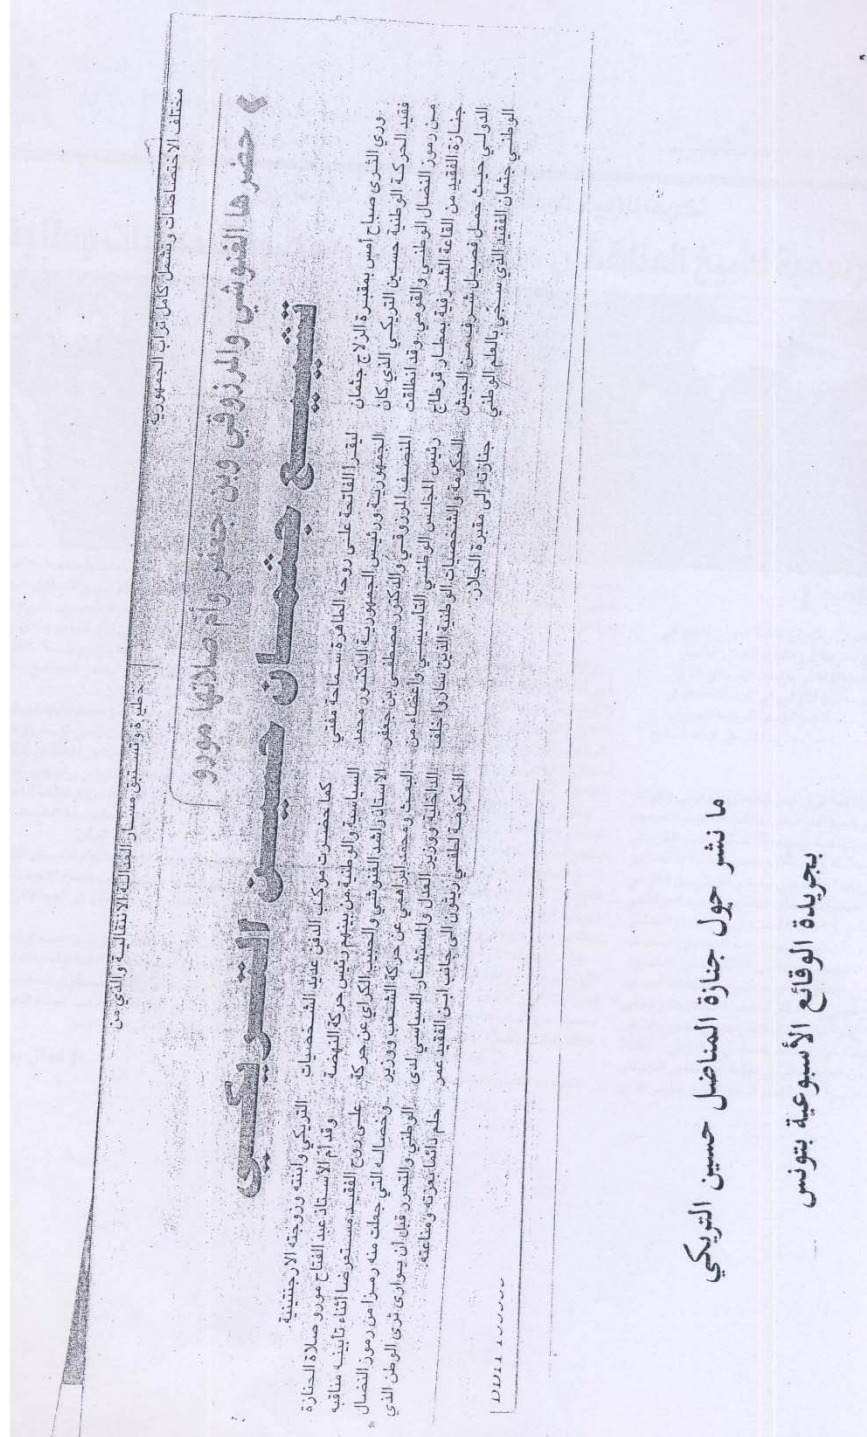 مختلف الاختصاصات وتشمل كامل تراب الجمهورية
مسار العدالة الانتقالية والذي من
حضرها الغنوشي والمرزوقي وبن جعفر وأم صلاتها مورو
تشييع جثمان حسين التريكي
ووري الثرى صباح أمس بمقبرة الزلاج جثمان
فقيد الحركة الوطنية حسين التريكي الذي كان
من رموز النضال الوطني والقومي. وقد انطلقت
جنازة الفقيد من القاعة الشرفية بمطار قرطاج
الدولي حيث حمل فصيل شرف من الجيش
الوطني جثمان الفقيد الذي سجّي بالعلم الوطني
ليقرأ الفاتحة على روحه الطاهرة سماحة مفتي
الجمهورية ورئيس الجمهورية الدكتور محمد
المنصف المرزوقي والدكتور مصطفى بن جعفر
رئيس المجلس الوطني التأسيسي وأعضاء من
الحكومة والشخصيات الوطنية الذين ساروا خلف
جنازته إلى مقبرة الجلاز.
كما حضرت موكب الدفن عديد الشخصيات
السياسية والوطنية من بينهم رئيس حركة النهضة
الاستاذ راشد الغنوشي والحبيب الكراي عن حركة
البعث ومحمد ابراهمي عن حركة الشعب ووزير
الداخلية ووزير العدل والمستشار السياسي لدى
الحكومة لطفي زيتون الى جانب ابن الفقيد عمر
التريكي وابنته وزوجته الارجنتينية
وقد أم الأستاذ عبد الفتاح مورو صلاة الجنازة
على روح الفقيد مستعرضا أثناء تأبينه مناقبه
وخصاله التي جعلت منه رمزا من رموز النضال
الوطني والتحرر قبل أن يوارى ثرى الوطن الذي
حلم دائما بعزته ومناعته.
ما نشر حول جنازة المناضل حسين التريكي
بجريدة الوقائع الأسبوعية بتونس